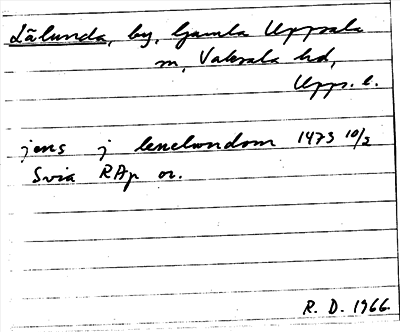 Lälunda, by, Gamla Uppsala
sn, Vaksala hd,
Upps. l.
jens j lenelundom 1473 10/2
Svia RAp or.
R. D. 1966.